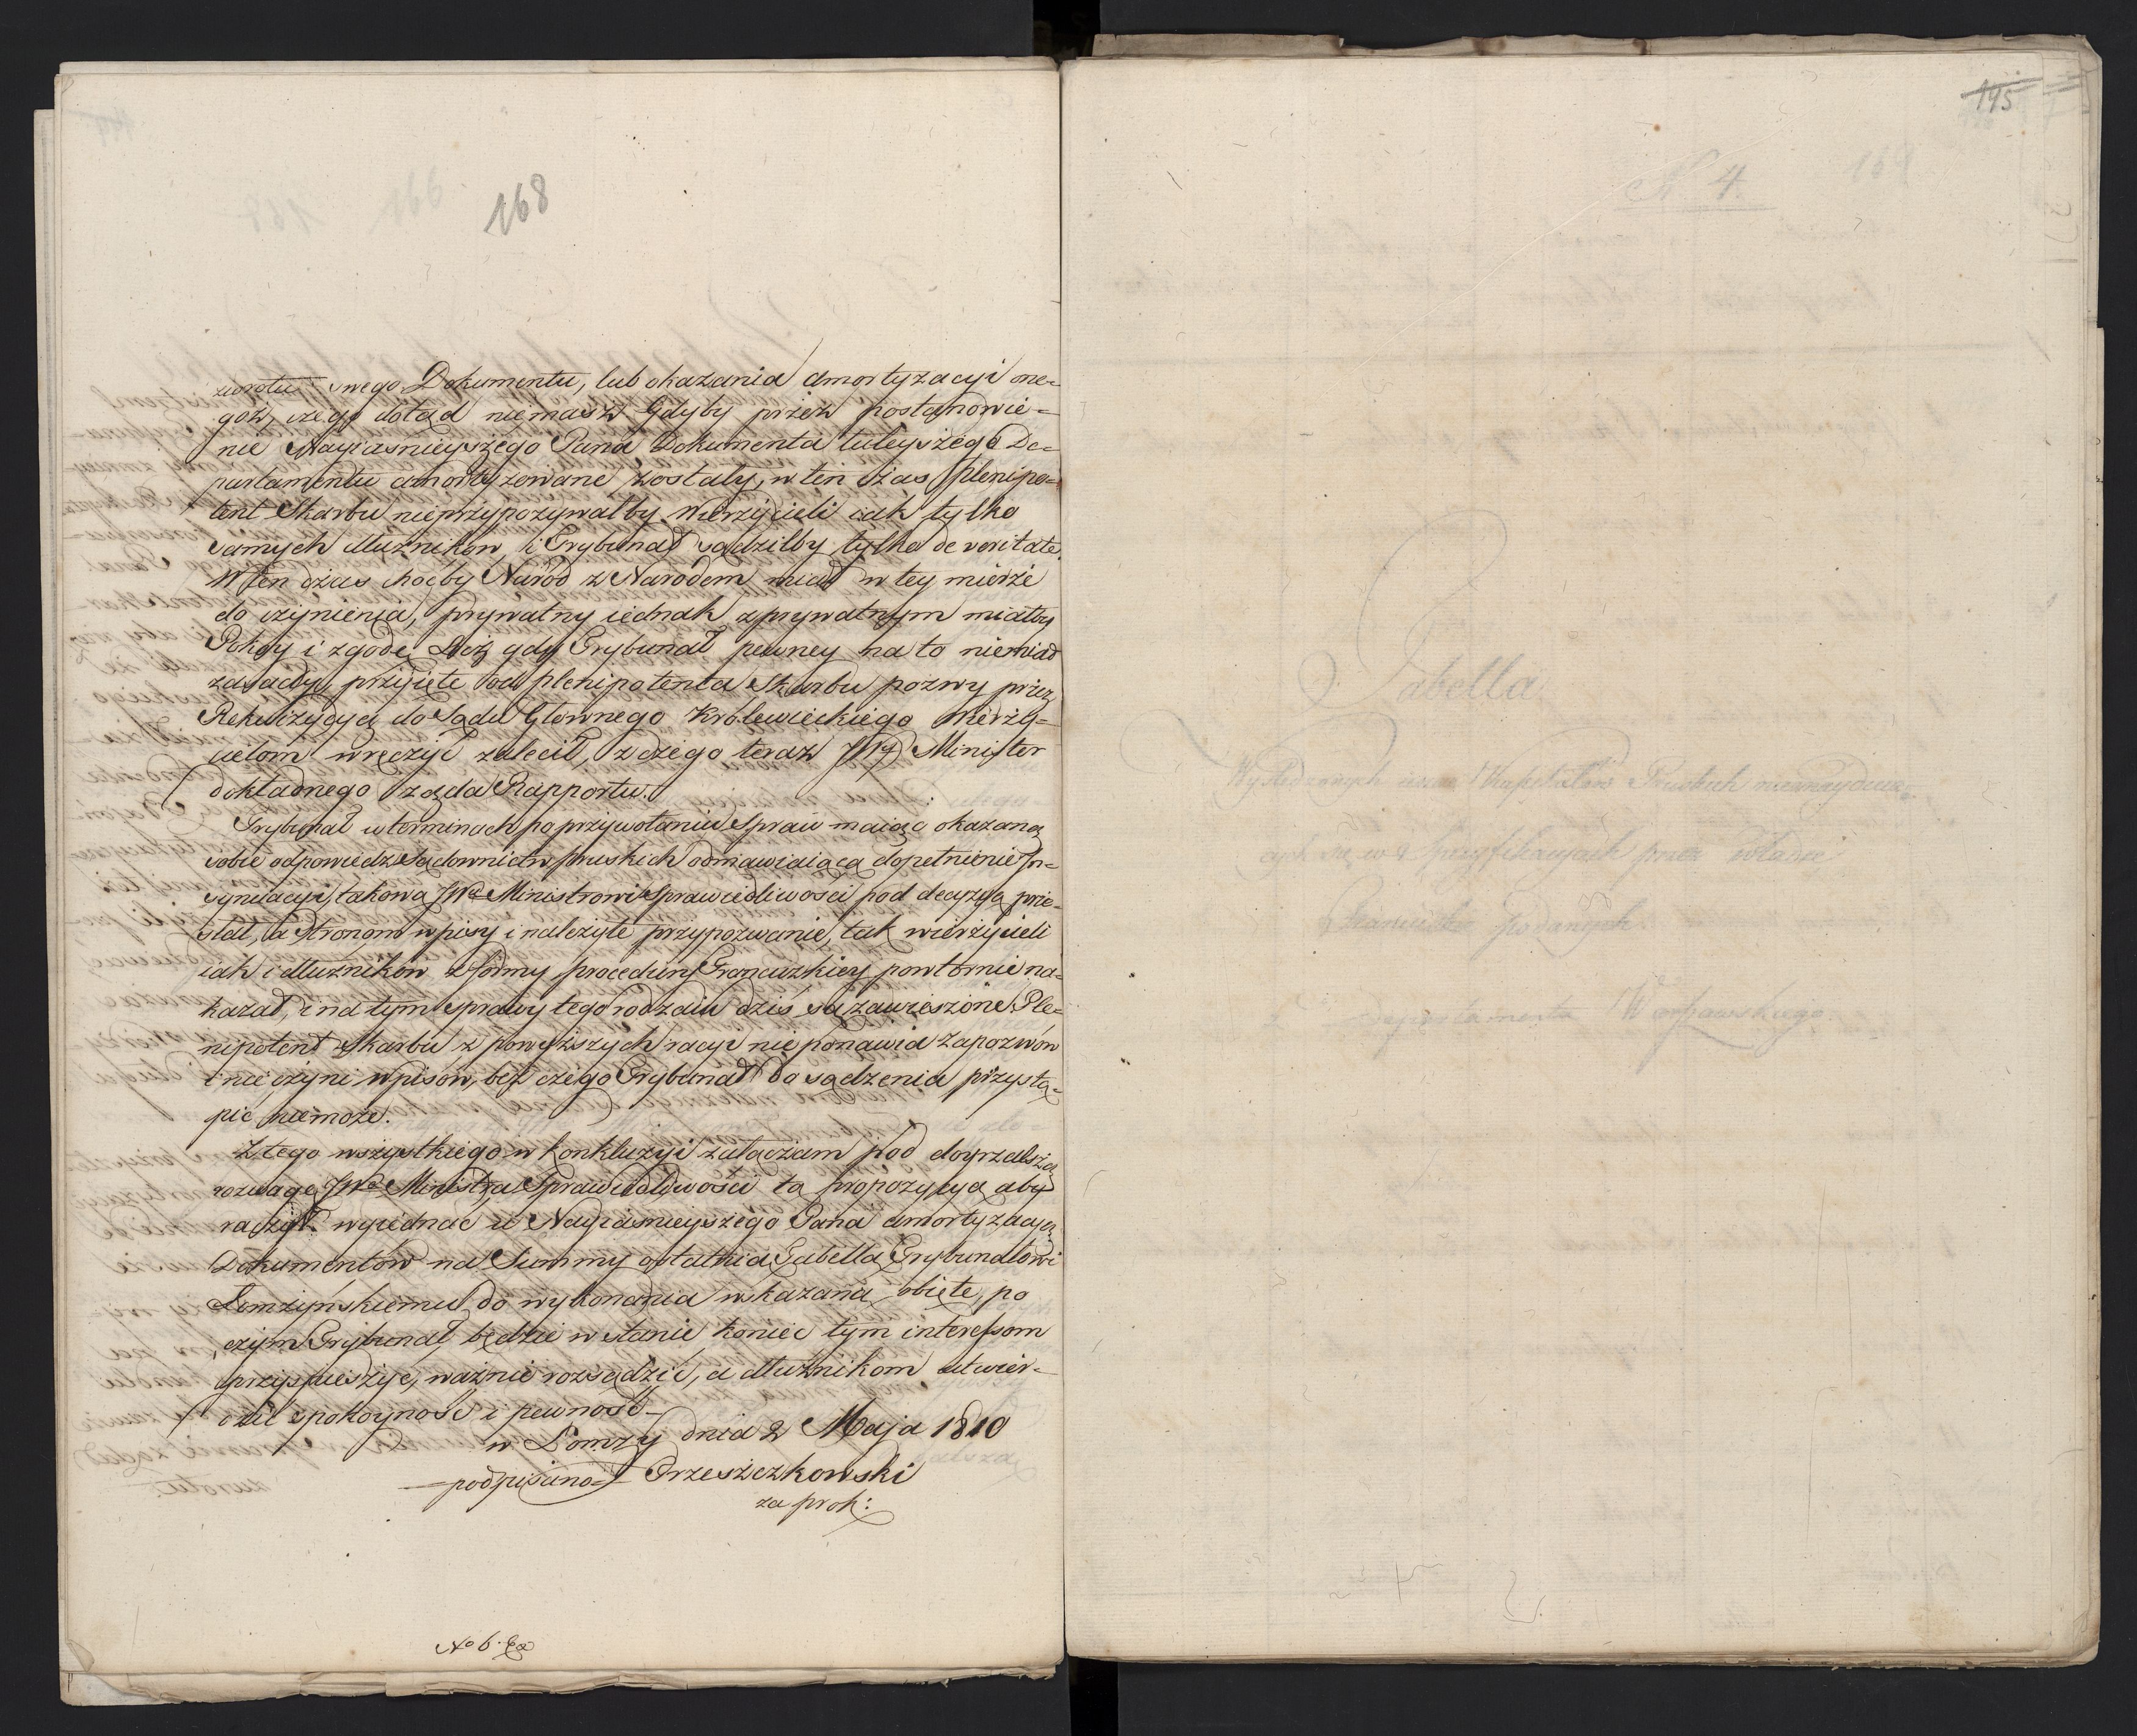 168
zwrotu swego Dokumentu, lub okazania amortyzacyi one-
goż, czego dotąd niemasz. Gdyby przez postanowie-
nie Nayiasnieyszego Pana Dokumenta tuteyszego De-
partamentu amortyzowane zostały, w ten czas plenipo-
tent Skarbu nieprzypozywałby wierzycieli iak tylko
samych dłużnikow, i Trybunał sądziłby tylko de veritate.
W ten czas choćby Naród z Narodem miał w tey mierze
do czynienia, prywatny iednak z prywatnym miałby
Pokoy i zgodę. Lecz gdy Trybunał pewney na to niemiał
zasady, przyięte od plenipotenta Skarbu pozwy przez
Rekwizycyą do Sądu Głownego Krolewieckiego wierzy-
cielom wręczyć zalecił, z czego teraz JW Minister
dokładnego żąda Rapportu.
Trybunał w terminach po przywołaniu Spraw maiąc okazaną
sobie odpowiedz Sądownictw pruskich odmawiaiącą dopełnienie In-
synuacyi, takową JWu Ministrowi Sprawiedliwości pod decyzyą prze-
słał, a Stronom wpisy i należyte przypozwanie, tak wierzycieli
iak i dłużnikow z formy procedury Francuzkiey powtornie na-
kazał, i na tym sprawy tego rodzaiu dziś są zawieszone. Ple-
nipotent Skarbu z powyższych racyi nie ponawia zapozwów
i nie czyni wpisów, bez czego Trybunał do sądzenia przystą-
pić niemoże.
Z tego wszystkiego w konkluzyi załączam pod doyrzalszą
rozwagę JWo Ministra Sprawiedliwości tą propozycyą aby
raczył wyiednac u Nayiasnieyszego Pana amortyzacyą
Dokumentow na Summy ostatnią Tabellą Trybunałowi
Łomżyńskiemu do wykonania wskazaną obięte, po
czym Trybunał będzie w stanie koniec tym interessom
przyspieszyć, ważnie rozsądzić, a dłużnikom utwier-
dzić spokoyność i pewność
w Łomży dnia 2 Maja 1810
podpisano Trzeszczkowski
za prok:
No 6.
145
169
N 4.
Tabella
Wyśledzonych Kapitałow Pruskich nieznayduią-
cych się w Specyfikacyach przez Władze
Francuzkie podanych.
z Departamentu Warszawskiego.